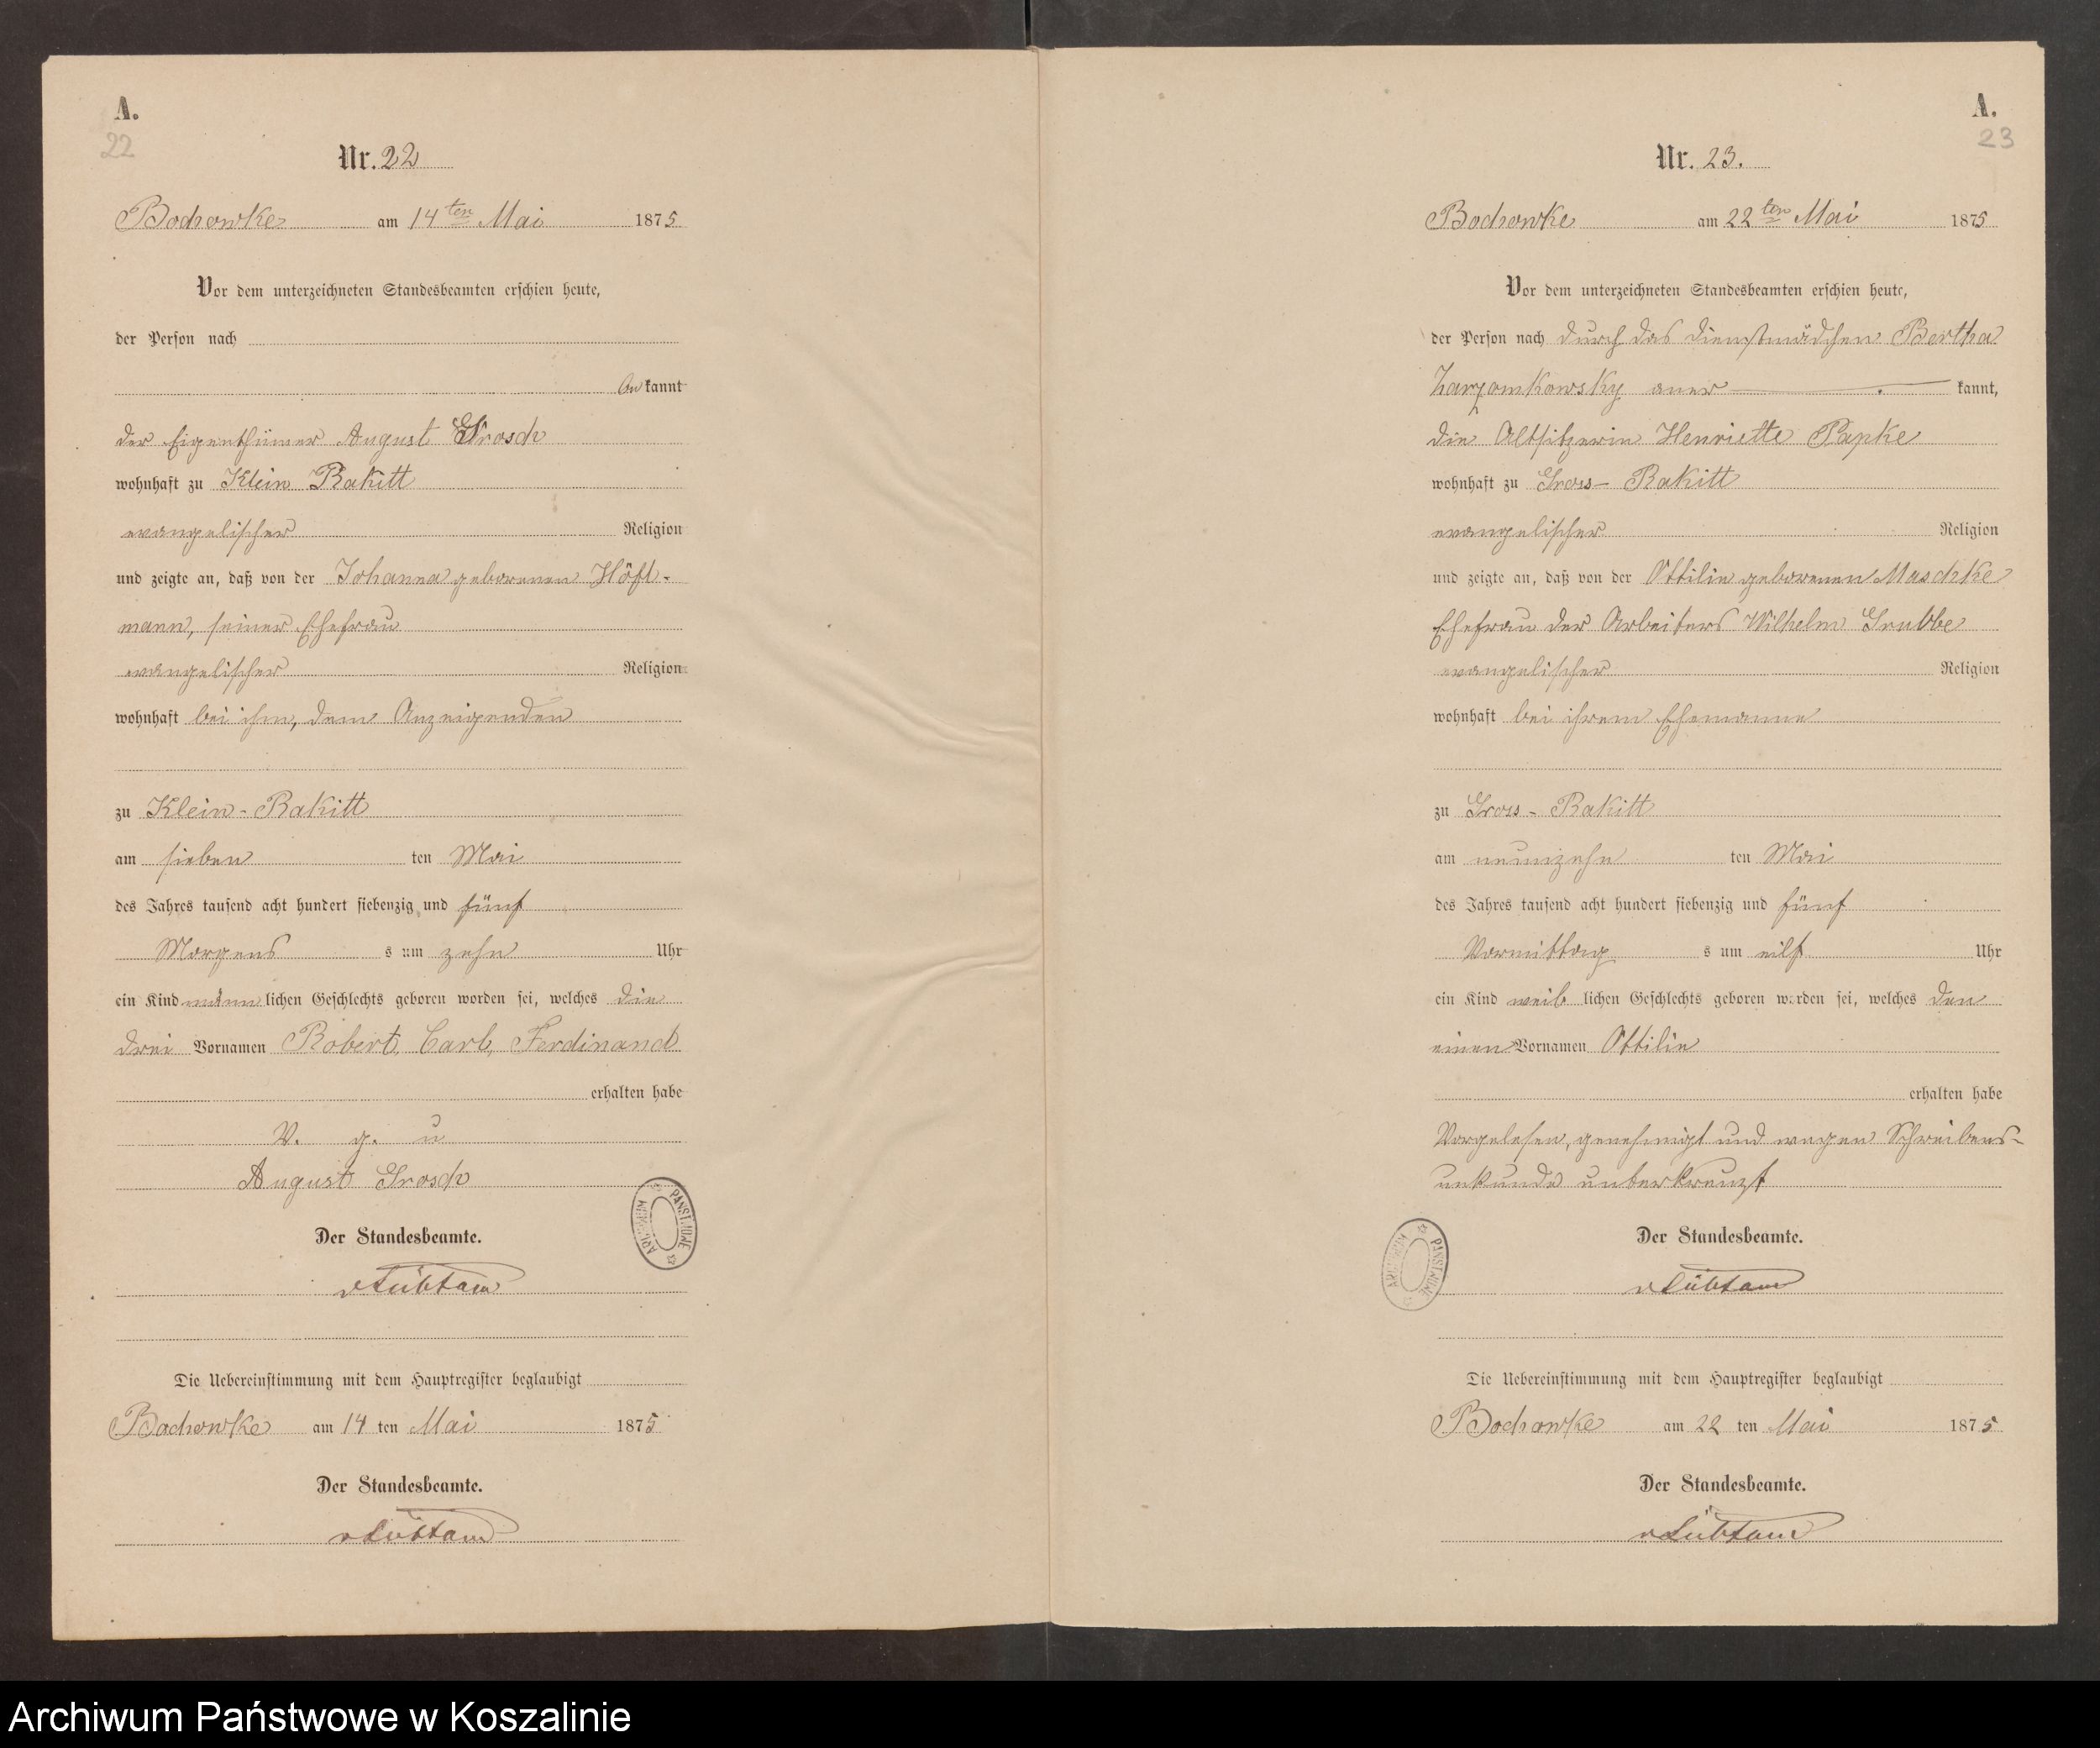 A.
22
Nr. 22
Bochowke am 14ten Mai 1875
Vor dem unterzeichneten Standesbeamten erschien heute,
der Person nach
kannt
der Eigenthümer August Grosch
wohnhaft zu Klein Rakitt
evangelischer Religion
und zeigte an, daß von der Johanna geborenen Höft-
mann, seiner Ehefrau
evangelischer Religion
wohnhaft bei ihm, dem Anzeigenden
zu Klein-Rakitt
am sieben ten Mai
des Jahres tausend acht hundert siebenzig und fünf
Morgens s um zehn Uhr
ein Kind männ lichen Geschlechts geboren worden sei, welches die
drei Vornamen Robert, Carl, Ferdinand
erhalten habe
V. g. u
August Grosch
Der Standesbeamte.
Die Uebereinstimmung mit dem Hauptregister beglaubigt
Bochowke am 14 ten Mai 1875
Der Standesbeamte.
A.
23
Nr. 23.
Bochowke am 22ten Mai 1875
Vor dem unterzeichneten Standesbeamten erschien heute,
der Person nach durch das Dienstmädchen Bertha
aner kannt,
die Altsitzerin Henriette Papke
wohnhaft zu Gross-Rakitt
evangelischer Religion
und zeigte an, daß von der Ottilie geborenen Maschke
Ehefrau des Arbeiters Wilhelm Grubbe
evangelischer Religion
wohnhaft bei ihrem Ehemanne
zu Gross-Rakitt
am neunzehn ten Mai
des Jahres tausend acht hundert siebenzig und fünf
Vormittag s um eilf Uhr
ein Kind weib lichen Geschlechts geboren worden sei, welches den
einen Vornamen Ottilie
erhalten habe
Vorgelesen, genehmigt und wegen Schreibens-
unkunde unterkreuzt
Der Standesbeamte.
Die Uebereinstimmung mit dem Hauptregister beglaubigt
Bochowke am 22 ten Mai 1875
Der Standesbeamte.
ARCHIWUM PAŃSTWOWE
ARCHIWUM PAŃSTWOWE
Archiwum Państwowe w Koszalinie